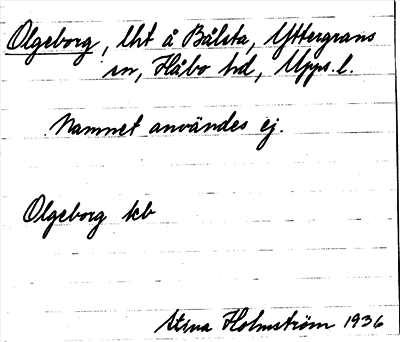 Olgeborg, lht å Bålsta, Yttergrans
sn, Håbo hd, Upps. l.
Namnet användes ej.
Olgeborg kb
Stina Holmström 1936